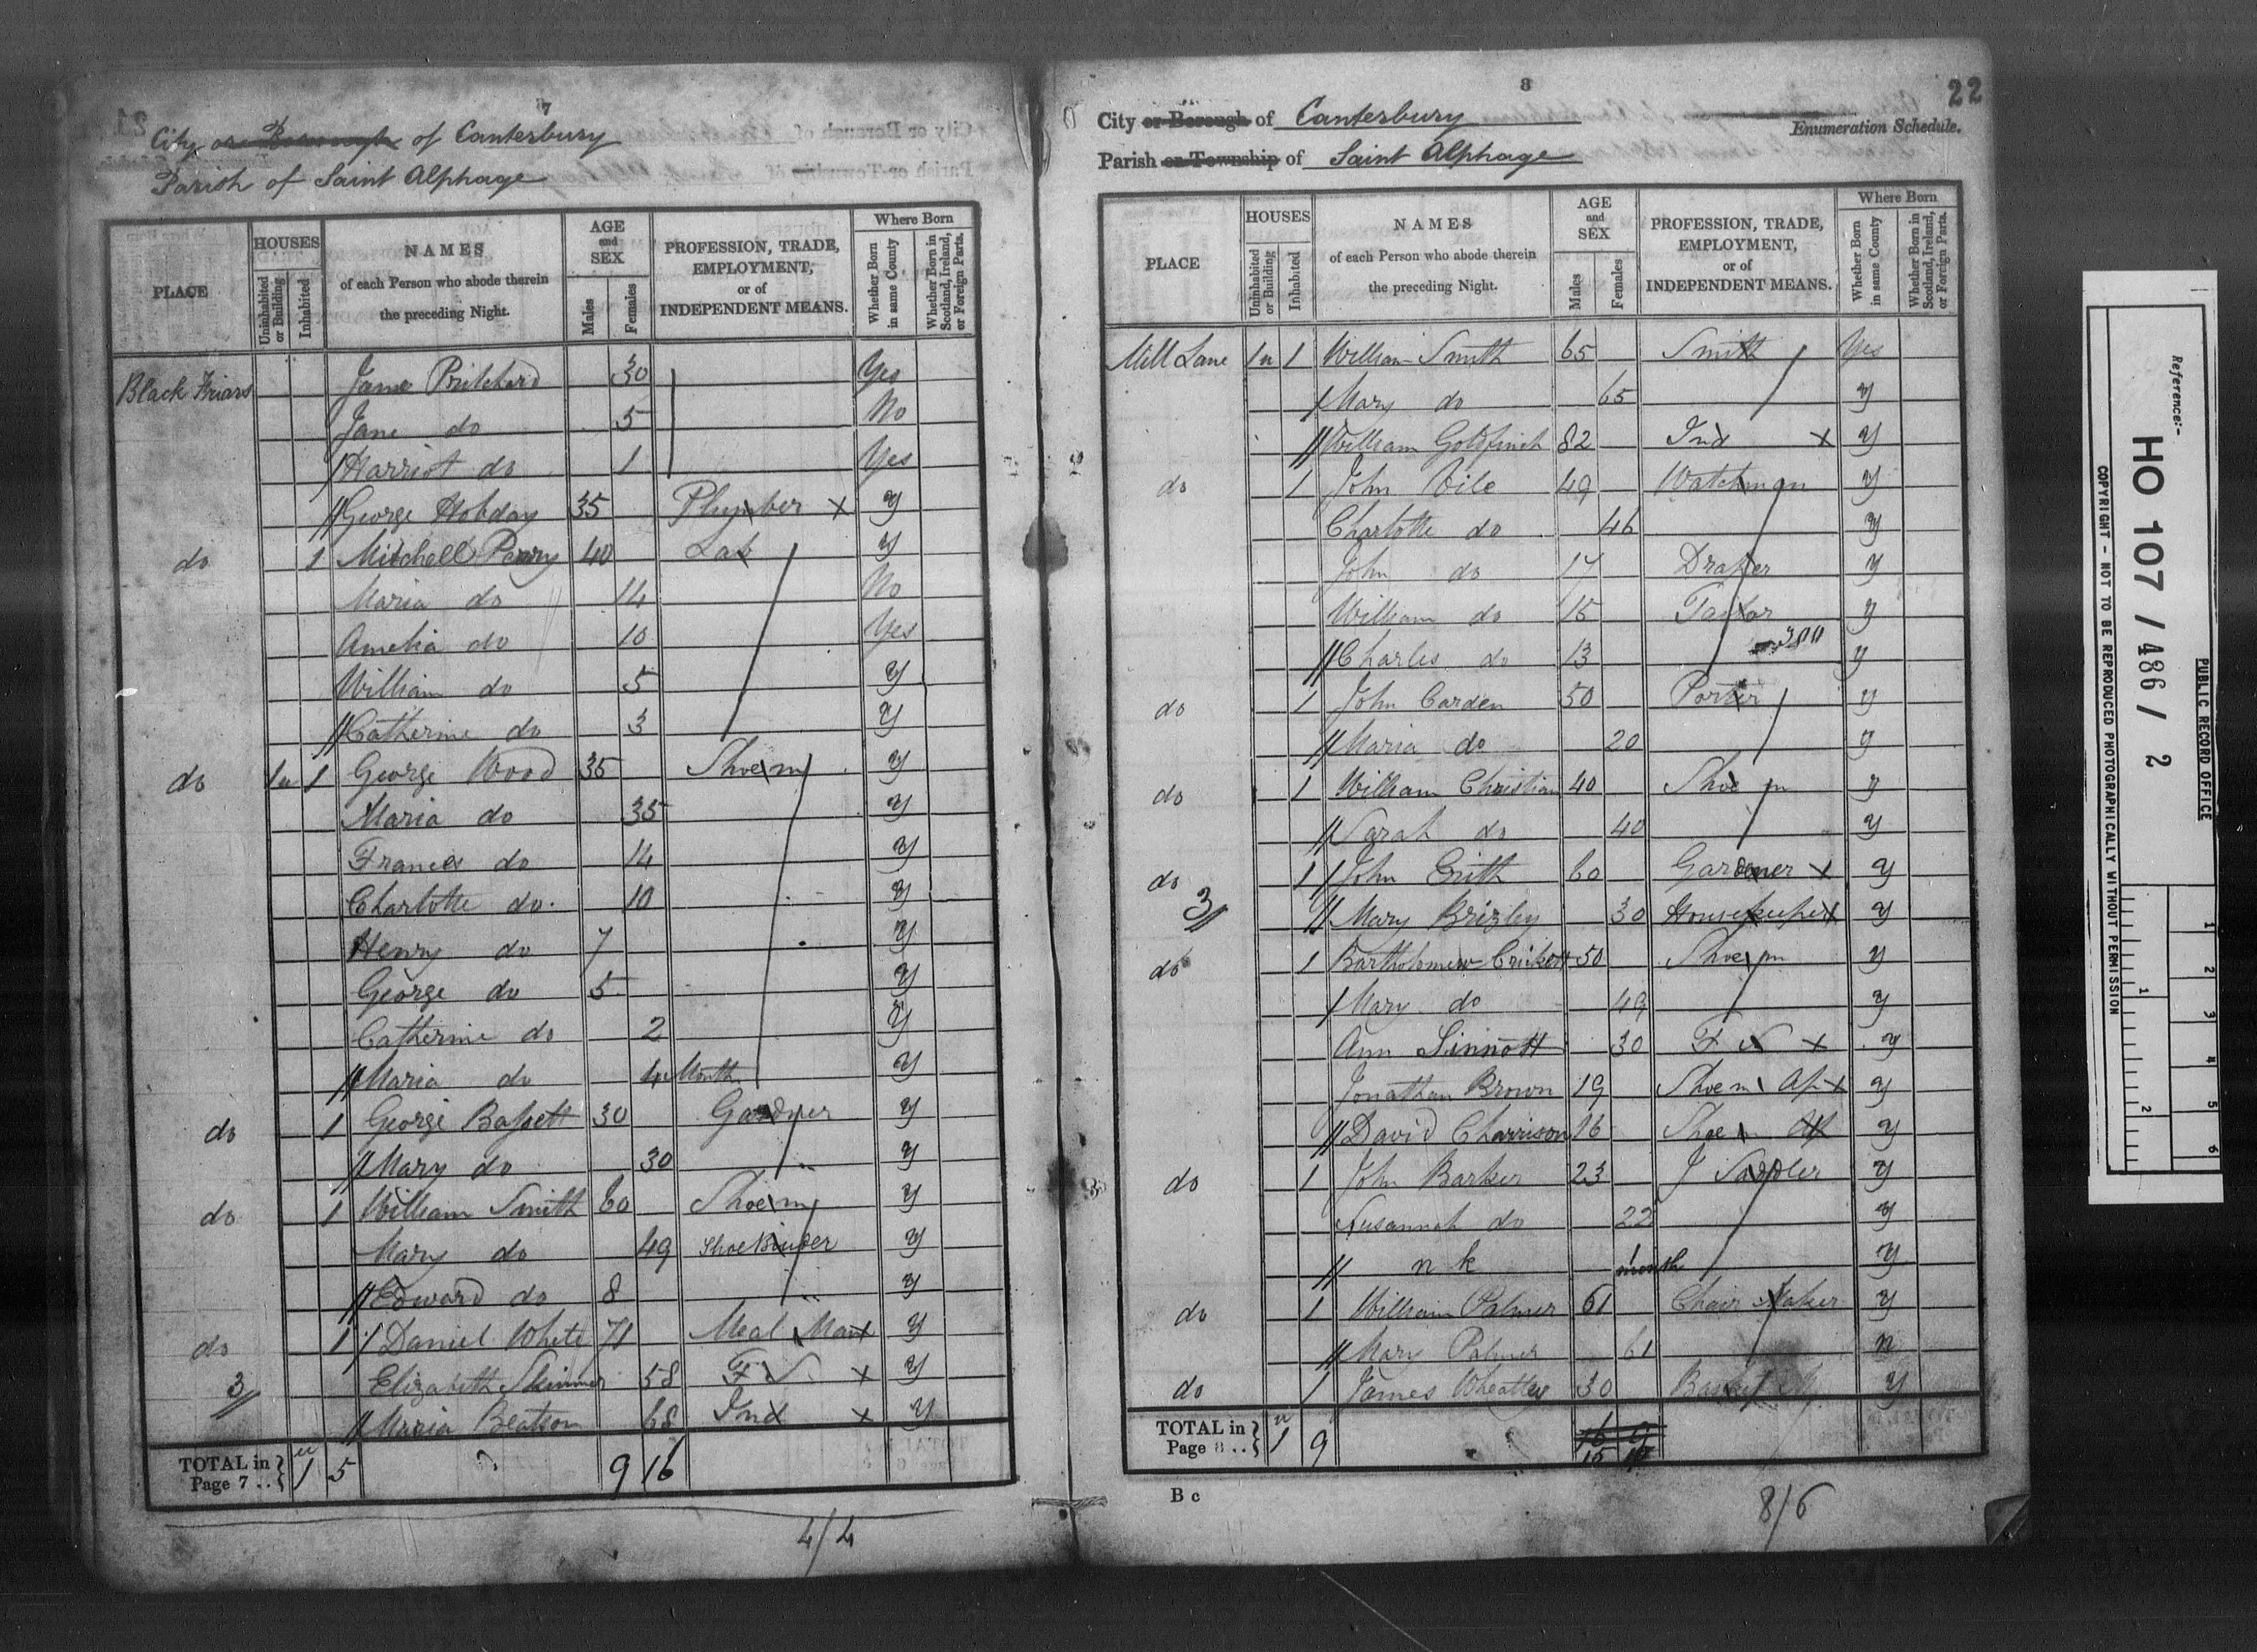 7
City or Borough of Canterbury
Parish of Saint Alphage
PLACE
HOUSES
Uninhabited or Building
Inhabited
NAMES
of each Person who abode therein
the preceding Night.
AGE
and
SEX
Males
Females
PROFESSION, TRADE,
EMPLOYMENT,
or of
INDEPENDENT MEANS.
Where Born
Whether Born in same County
Whether Born in Scotland, Ireland, or Foreign Parts.
Black Friars Jane Pritchard 30 Yes
Jane do 5 No
Harriot do 1 Yes
George Hobday 35 Plumber y
do 1 Mitchell Perry 40 Lab y
Maria do 14 No
Amelia do 10 Yes
William do 5 y
Catherine do 3 y
do 1u 1 George Wood 35 Shoe m y
Maria do 35 y
Frances do 14 y
Charlotte do 10 y
Henry do 7 y
George do 5 y
Catherine do 2 y
Maria do 4 Month y
do 1 George Bassett 30 Gardner y
Mary do 30 y
do 1 William Smith 60 Shoe m y
Mary do 49 Shoe Binder y
Edward do 8 y
do 1 Daniel White 71 Meal Man y
3 Elizabeth Skinner 58 F S y
Maria Beatson 68 Ind y
TOTAL in Page 7 .. } 1 u 5 9 16
4/4
8
22
City or Borough of Canterbury
Enumeration Schedule.
Parish or Township of Saint Alphage
PLACE
HOUSES
Uninhabited or Building
Inhabited
NAMES
of each Person who abode therein
the preceding Night.
AGE
and
SEX
Males
Females
PROFESSION, TRADE,
EMPLOYMENT,
or of
INDEPENDENT MEANS.
Where Born
Whether Born in same County
Whether Born in Scotland, Ireland, or Foreign Parts.
Mill Lane 1u 1 William Smith 65 Smith Yes
Mary do 65 y
William Goldfinch 82 Ind y
do 1 John Vile 49 Watchman y
Charlotte do 46 y
John do 17 Draper y
William do 15 Tailor y
Charles do 13 y
do 1 John Carden 50 Porter y
Maria do 20 y
do 1 William Christian 40 Shoe m y
Sarah do 40 y
do 1 John Erith 60 Gardener y
3 Mary Brizley 30 Housekeeper y
do 1 Bartholomew Crickett 50 Shoe m y
Mary do 49 y
Ann Sinnott 30 F S y
Jonathan Brown 19 Shoe m Ap y
David Charrison 16 Shoe m Ap y
do 1 John Barker 23 J Saddler y
Susannah do 22 y
n k 1 month y
do 1 William Palmer 61 Chair Maker y
Mary Palmer 61 n
do 1 James Wheatley 30 Basket M y
TOTAL in Page 8 .. } 1 u 9 16 9
15 10
B c
8/6
Reference:-
HO 107 / 486 / 2
PUBLIC RECORD OFFICE
COPYRIGHT - NOT TO BE REPRODUCED PHOTOGRAPHICALLY WITHOUT PERMISSION
1 2 3 4 5 6
1 2